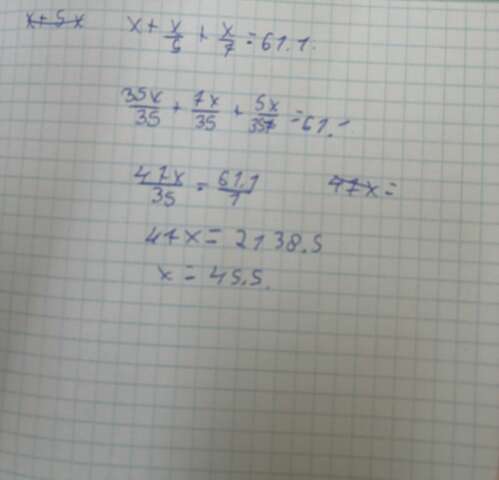 x+5x x + x/5 + x/7 = 61.1.
35x/35 + 7x/35 + 5x/35 = 61.1
47x/35 = 61.1/1 47x =
47x = 2138.5
x = 45.5.